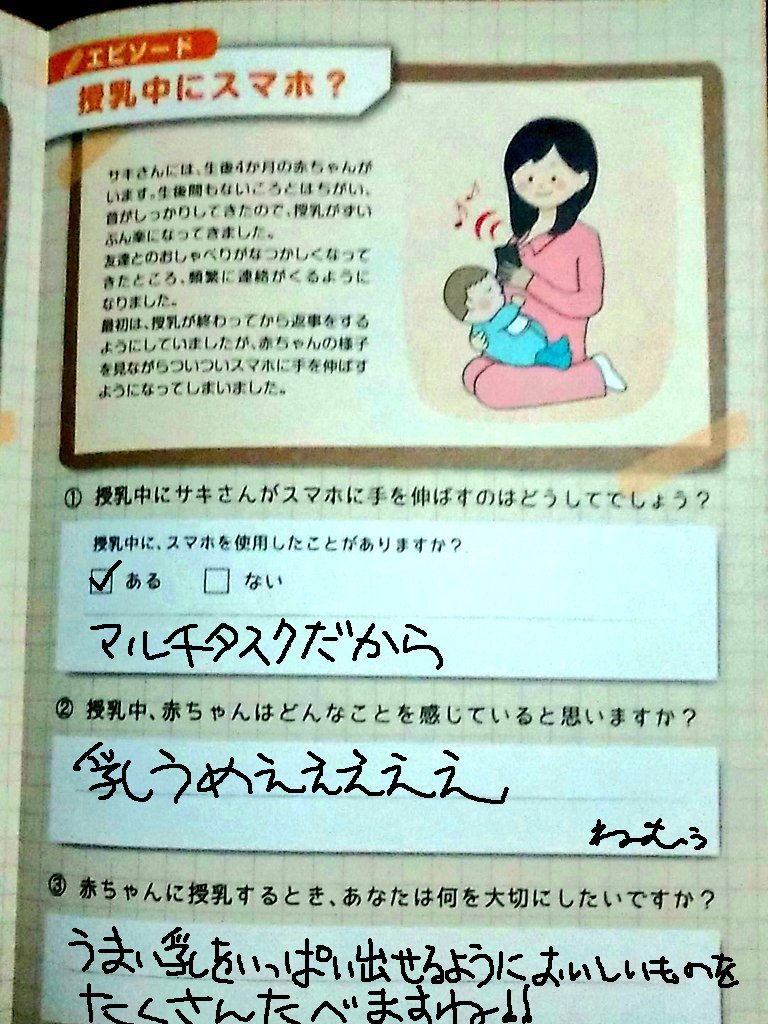 エピソード
授乳中にスマホ？
サキさんには、生後4か月の赤ちゃんが
います。生後間もないころとはちがい、
首がしっかりしてきたので、授乳がずい
ぶん楽になってきました。
友達とのおしゃべりがなつかしくなって
きたところ、頻繁に連絡がくるように
なりました。
最初は、授乳が終わってから返事をする
ようにしていましたが、赤ちゃんの様子
を見ながらついついスマホに手を伸ばす
ようになってしまいました。
① 授乳中にサキさんがスマホに手を伸ばすのはどうしてでしょう？
授乳中に、スマホを使用したことがありますか？
ある ない
マルチタスクだから
② 授乳中、赤ちゃんはどんなことを感じていると思いますか？
乳うめぇぇぇぇぇ
ねむぅ
③ 赤ちゃんに授乳するとき、あなたは何を大切にしたいですか？
うまい乳をいっぱい出せるようにおいしいものを
たくさんたべますね!!